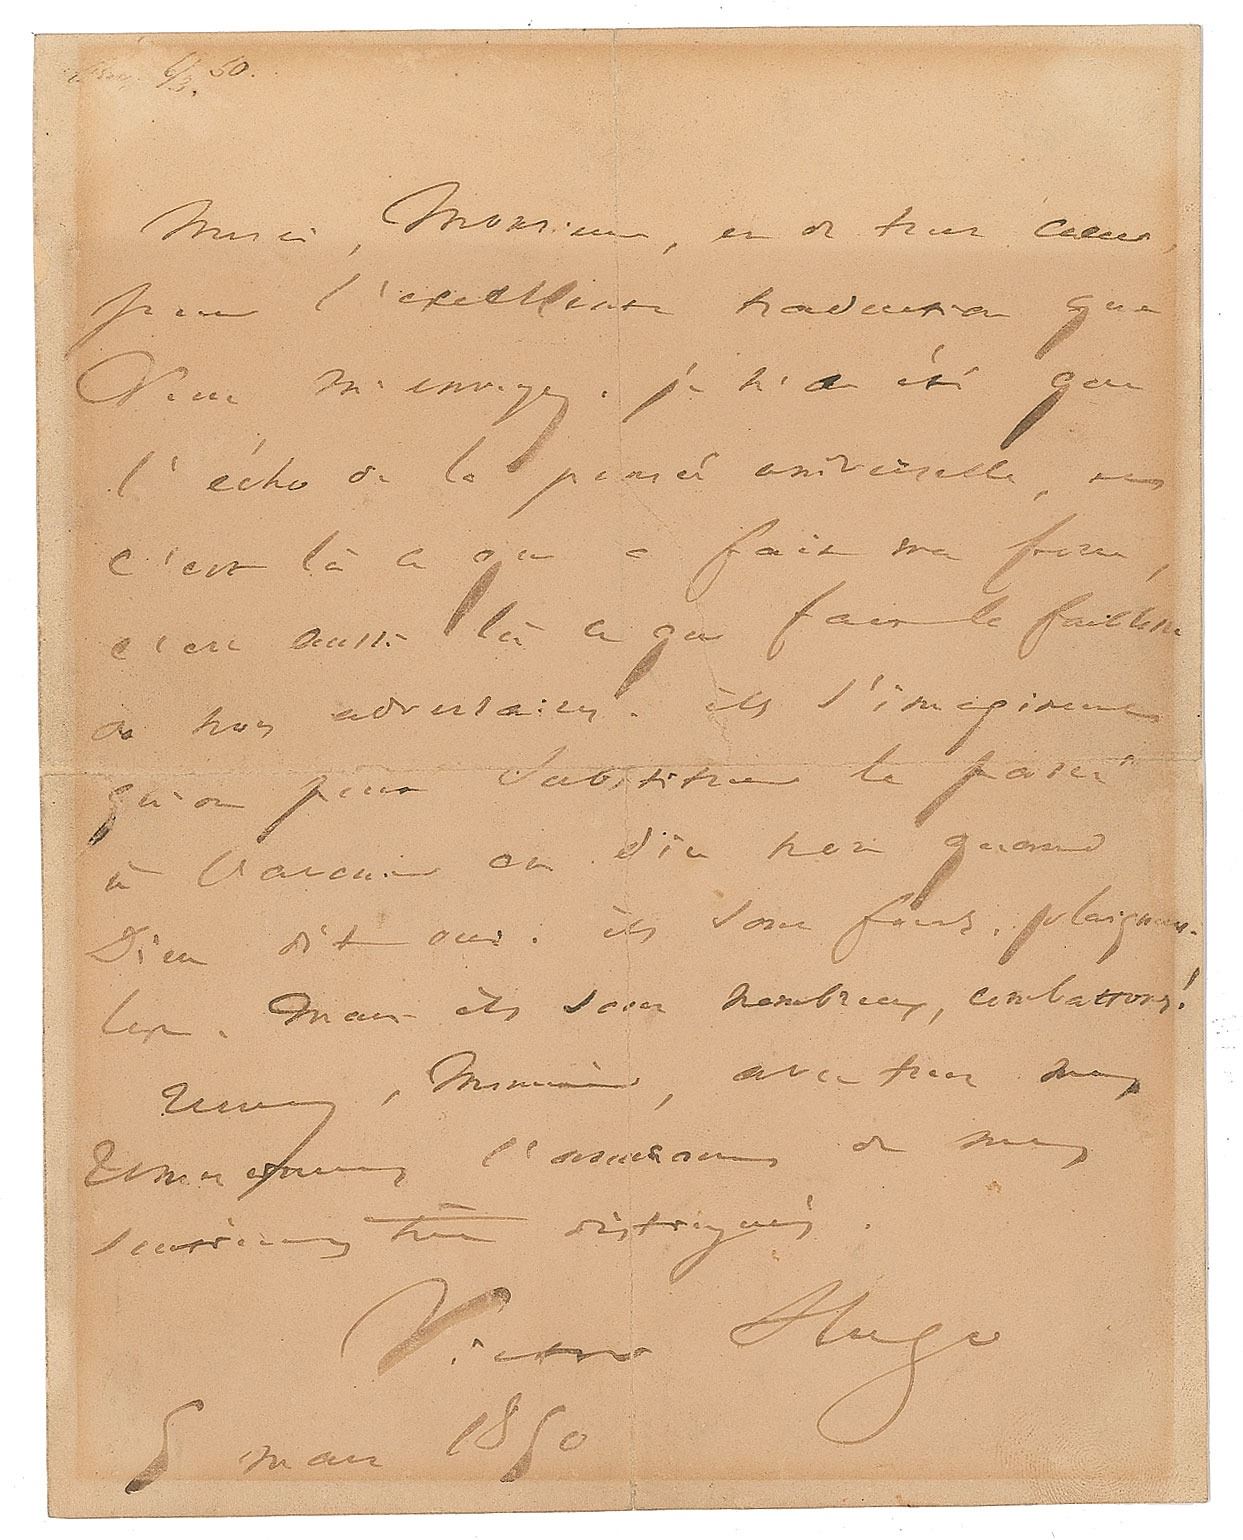 6/3. 50.
Merci, Monsieur, et de tout cœur,
pour l'excellente traduction que
vous m'envoyez. je n'ai été que
l'écho de la pensée universelle,
c'est là ce qui a fait ma force,
c'est aussi là ce qui fait la faiblesse
de nos adversaires. ils s'imaginent
qu'on peut substituer le passé
à l'avenir et dire non quand
Dieu dit oui. ils sont fous, plaignons-
les. Mais ils sont nombreux, combattons!
Recevez, Monsieur, avec tous mes
remercîments l'assurance de mes
sentiments très distingués.
Victor Hugo
5 mars 1850